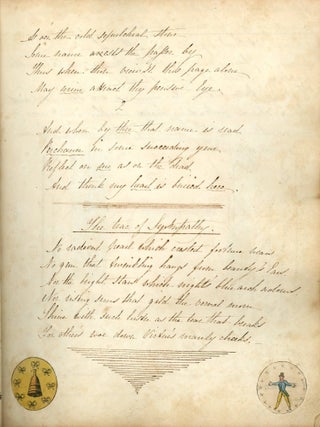 As o'er the cold sepulchral stone
Some name arrests the passer by
Thus when thou view'st this page alone
May mine attract thy pensive Eye.
2
And when by thee that name is read
Perchance in some succeeding year,
Reflect on me as on the Dead
And think my heart is buried here.
The tear of Sympathy.
No radient pearl which crested fortune wears
No gem that twinkling hangs from beauty's Ears
Not the bright Stars which night's blue arch adorns
Nor rising suns that gild the vernal morn
Shine with such lustre as the tear that breaks
For other's woe down Virtue's manly cheeks.